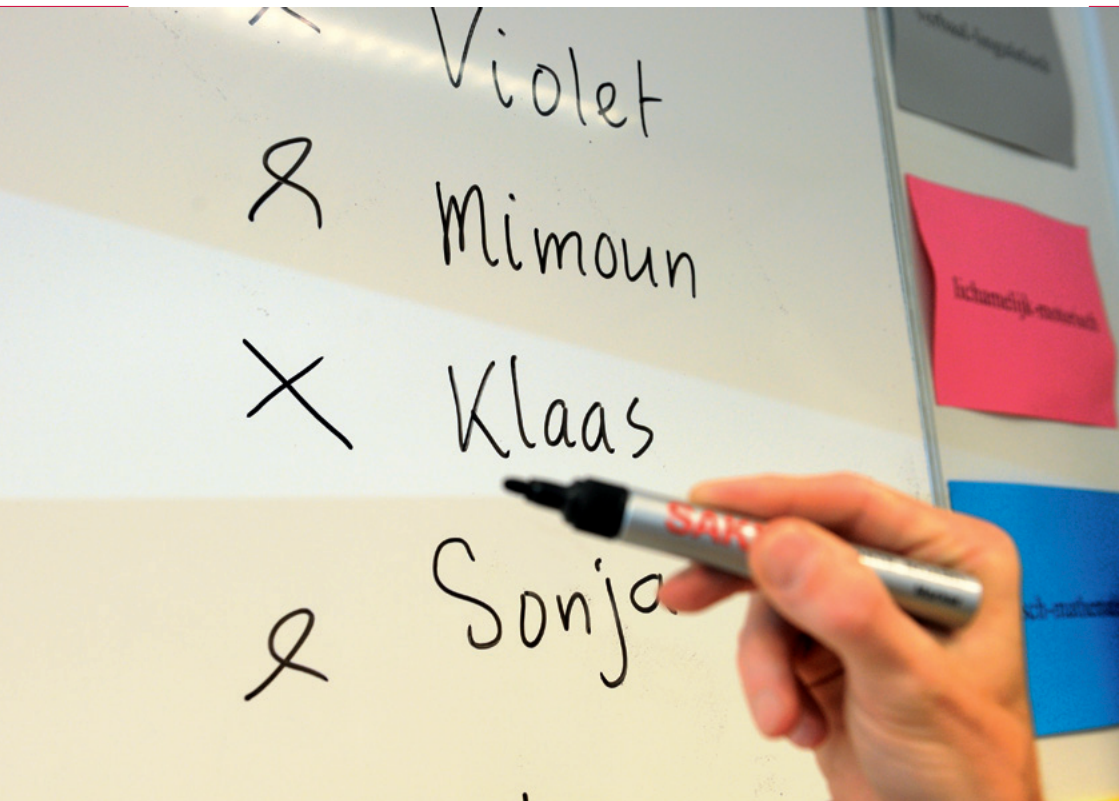 Violet
Mimoun
X Klaas
Sonja
lichamelijk-motorisch
SAK
sch-mathema